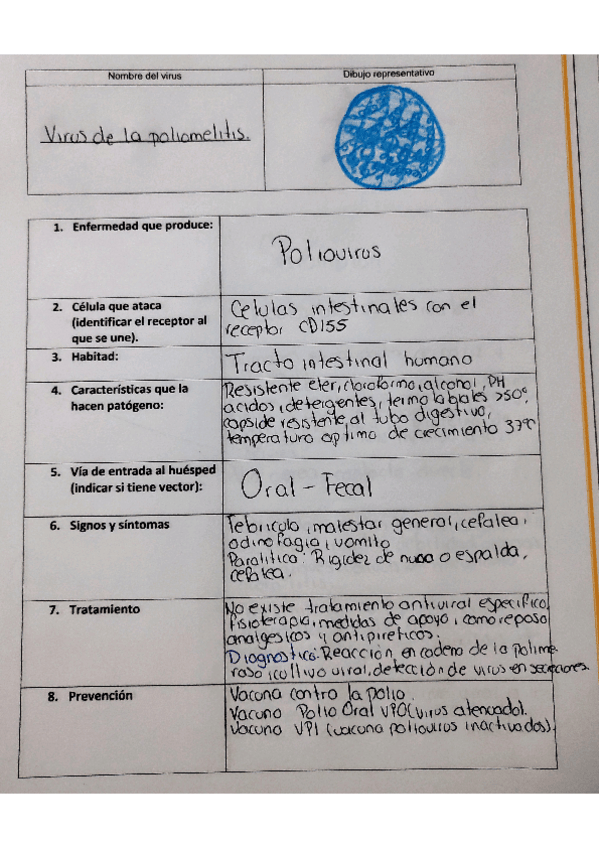 Nombre del virus
Dibujo representativo
Virus de la poliomelitis.
1. Enfermedad que produce:
Poliovirus
2. Célula que ataca
(identificar el receptor al
que se une).
Celulas intestinales con el
receptor CD155
3. Habitad:
Tracto intestinal humano
4. Características que la
hacen patógeno:
Resistente eter, cloroformo, alcohol, PH
acidos, detergentes, termolabiles >50°,
capside resistente al tubo digestivo,
temperatura optima de crecimiento 37°C
5. Vía de entrada al huésped
(indicar si tiene vector):
Oral - Fecal
6. Signos y síntomas
Febricula, malestar general, cefalea,
odinofagia, vomito
Paralitica: Rigidez de nuca o espalda,
cefalea.
7. Tratamiento
No existe tratamiento antiviral especifico,
fisioterapia, medidas de apoyo, como reposo
analgesicos y antipireticos.
Diagnostico: Reacción en cadena de la polime
rasa, cultivo viral, detección de virus en secreciones.
8. Prevención
Vacuna contra la polio.
Vacuna Polio Oral VPO (virus atenuado).
Vacuna VPI (vacuna poliovirus inactivados).